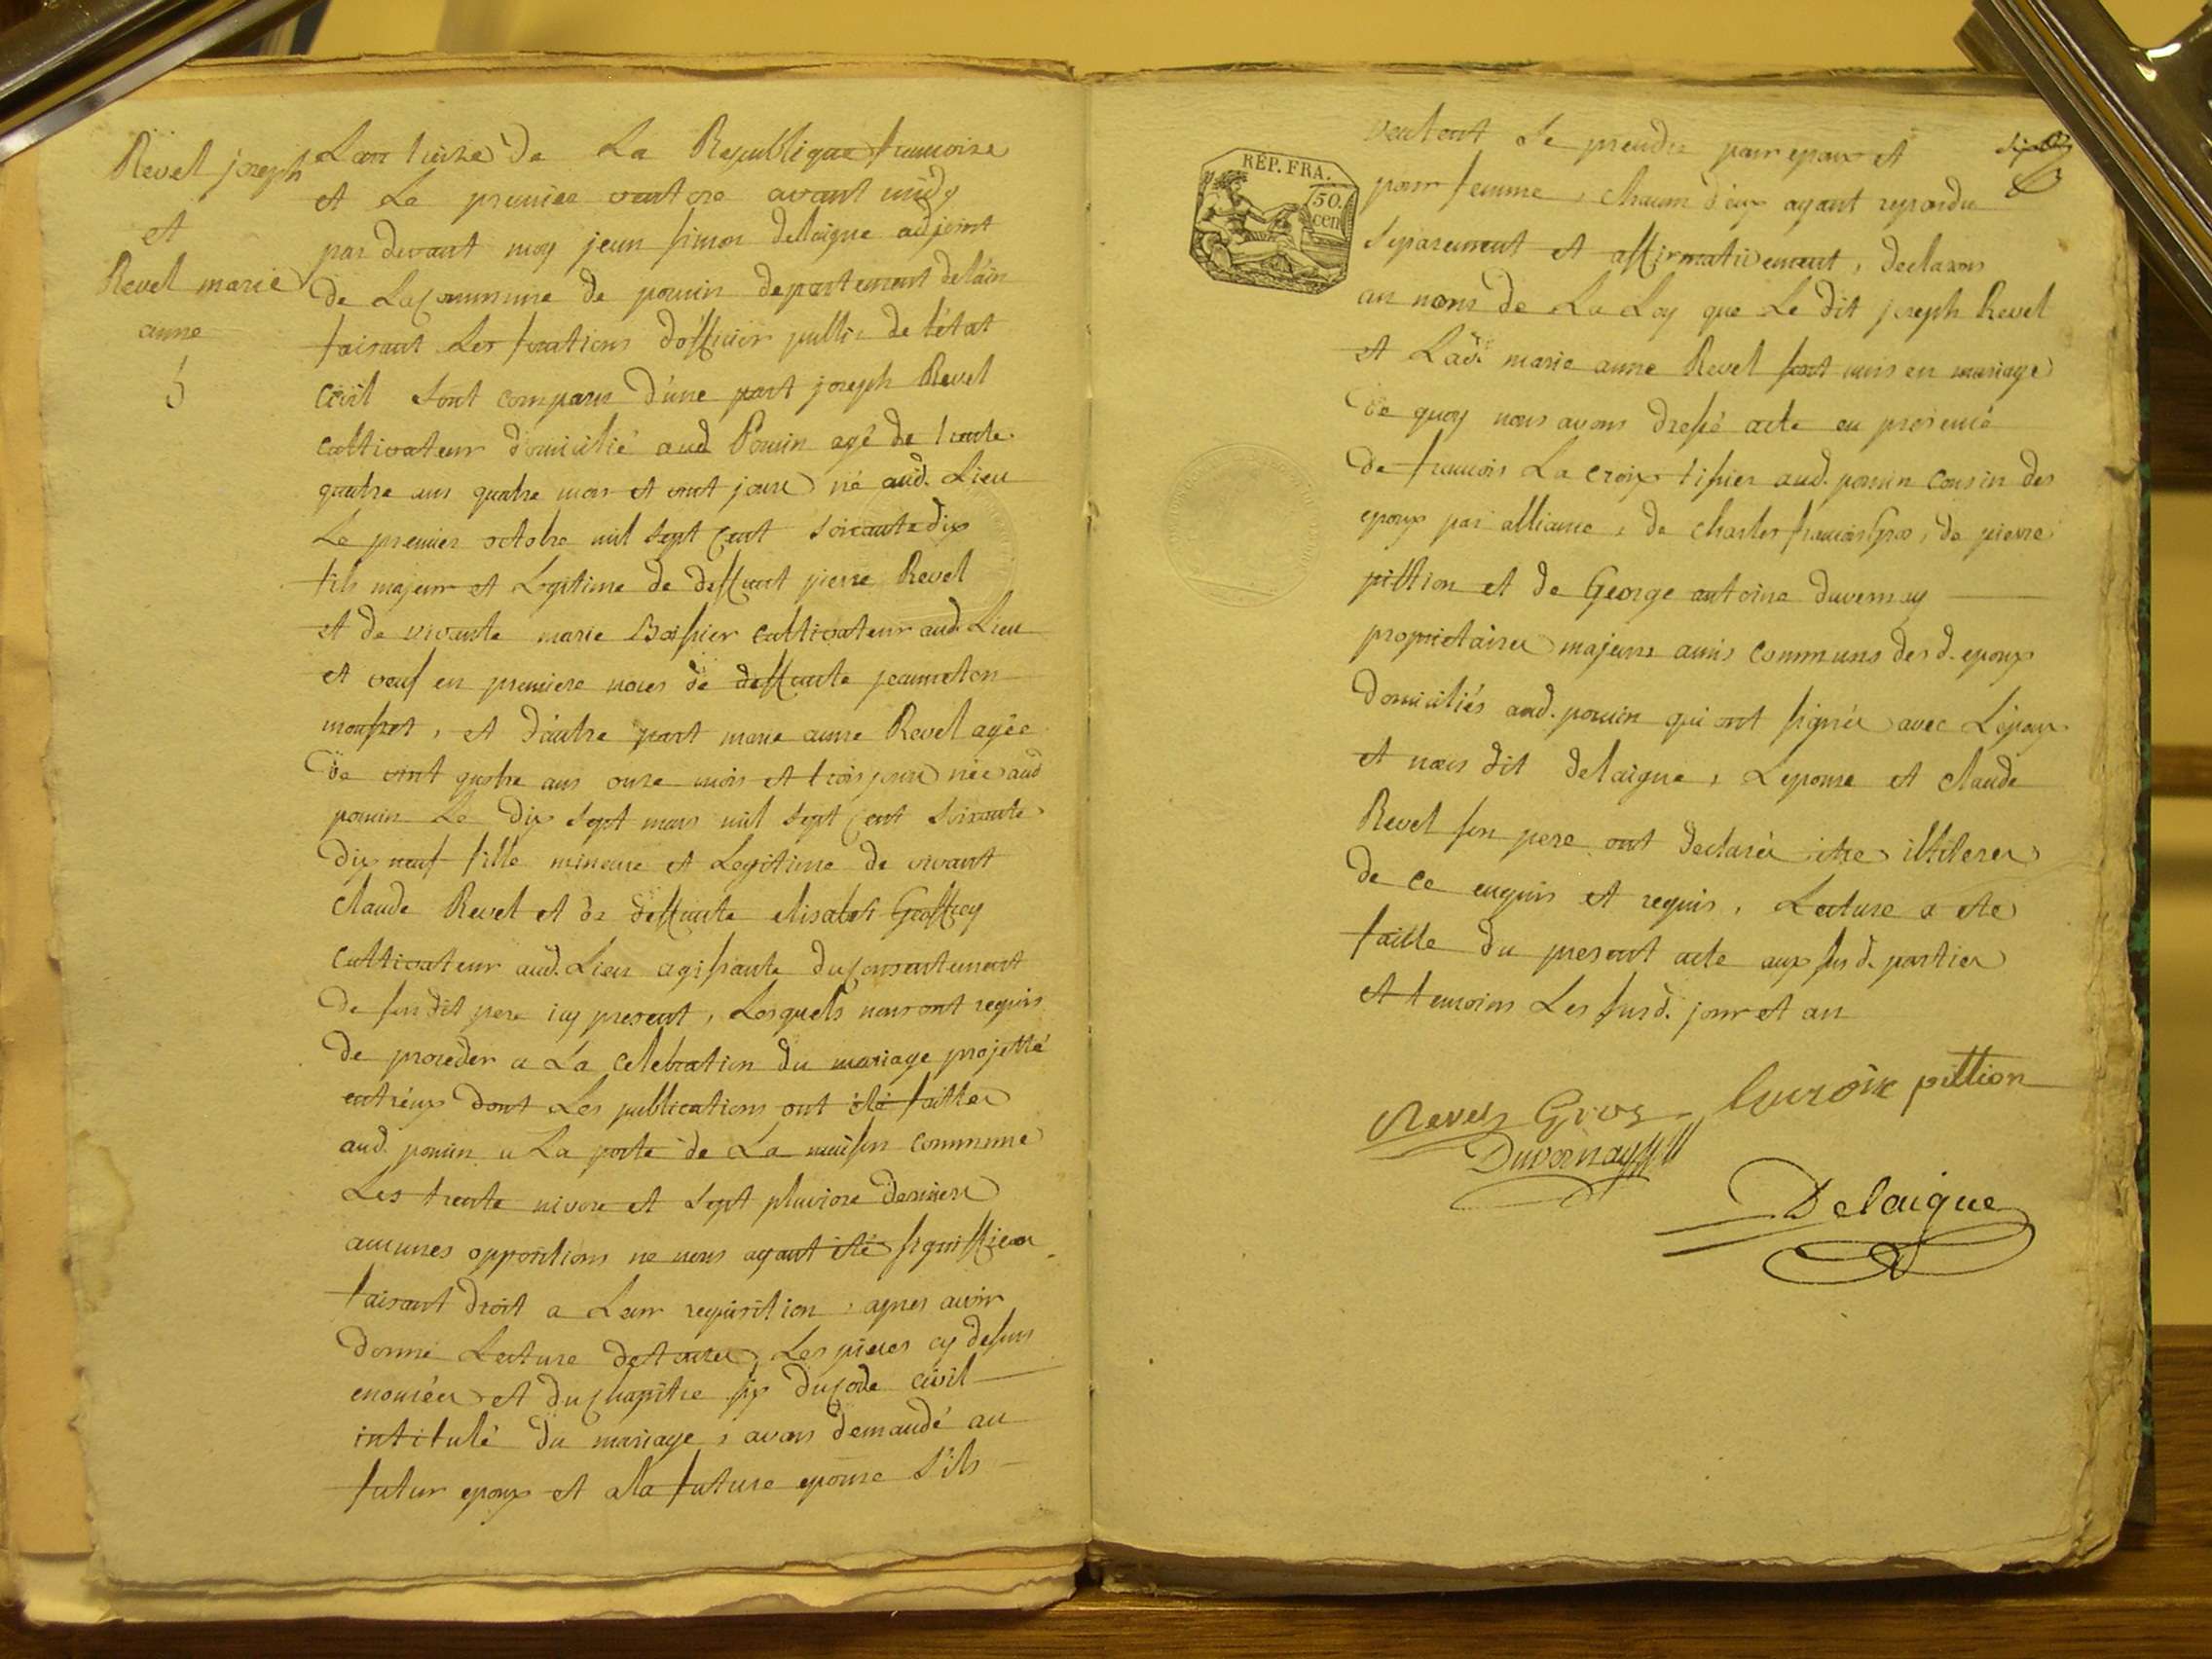 Revel joseph
et
Revel marie
anne
5
Lan treize de La Republique francoise
et Le premier ventose avant midy
par devant moy jean simon delaigue adjoint
de La commune de pouin departement de l'ain
faisant Les fonctions d'officier public de l'état
civil sont comparus d'une part joseph Revel
cultivateur domicilié aud Pouin agé de trente
quatre ans quatre mois et vint jours né aud. Lieu
Le premier octobre mil sept cent soixante dix
fils majeur et Legitime de deffunt pierre Revel
et de vivante marie cultivateur aud. Lieu
et veuf en premiere noces de deffunte jeanneton
et d'autre part marie anne Revel agée
de vint quatre ans onze mois et trois jours née aud
pouin Le dix sept mars mil sept cent soixante
dix neuf fille mineure et Legitime de vivant
claude Revel et de deffunte elisabet Geoffrey
cultivateur aud. Lieu agissante du consentement
de son dit pere icy present, Lesquels nous ont requis
de proceder a La celebration du mariage projetté
entr'eux dont Les publications ont été faittes
aud. pouin a La porte de La maison commune
Les trente nivose et sept pluviose derniers
aucunes oppositions ne nous ayant été signiffiées
faisant droit a Leur requisition, apres avoir
donné Lecture de toutes Les pieces cy dessus
enoncées et du chapitre six du code civil
intitulé du mariage, avons demandé au
futur epoux et a la future epouse s'ils
RÉP. FRA.
50.
cen
veulent se prendre pour epoux et
pour femme, chacun d'eux ayant repondu
separement et affirmativement, declarons
au nom de La Loy que Le dit joseph Revel
et Lad. marie anne Revel sont unis en mariage
de quoy nous avons dressé acte en presence
de francois La croix tissier aud. pouin cousin des
epoux par alliance, de charles francois Gros, de pierre
pittion et de George antoine duvernay
proprietaires majeurs amis communs des d. epoux
domiciliés aud. pouin qui ont signés avec L'epoux
et nous dit delaigue, L'epouse et claude
Revel son pere ont declarés etre illiterés
de ce enquis et requis, Lecture a eté
faitte du present acte aux susd. parties
et temoins Les susd. jour et an
Revel Gros Lacroix pittion
Duvernay
Delaigue